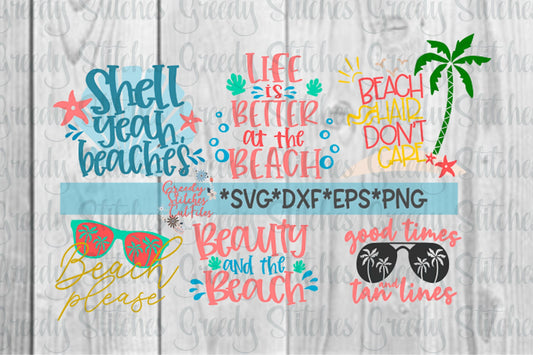 Greedy Stitches
Shell
yeah,
beaches
LIFE
is
BETTER
at the
BEACH
BEACH
HAIR
DON'T
CARE
Greedy
Stitches
Cut Files
*SVG*DXF*EPS*PNG
Beach
please
Beauty
and the
Beach
good times
and
tan lines